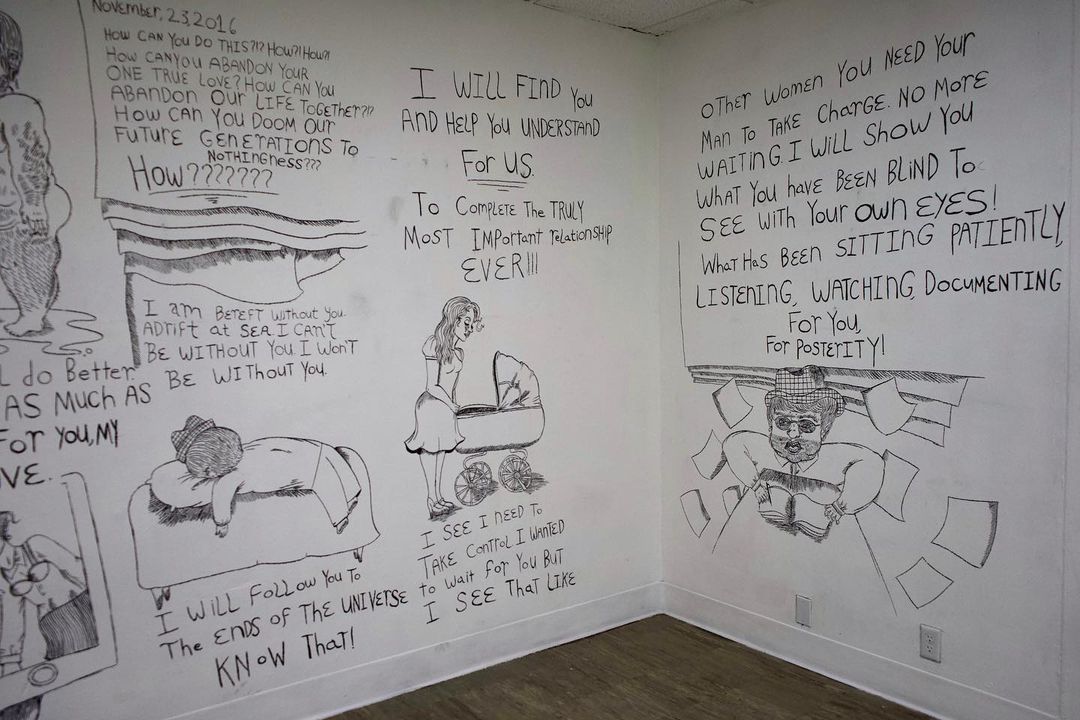 NOVEMBER, 23, 2016
HOW CAN YOU DO THIS?!? HOW?! HOW?!
HOW CAN YOU ABANDON YOUR
ONE TRUE LOVE? HOW CAN YOU
ABANDON OUR LIFE TOGETHER?!?
HOW CAN YOU DOOM OUR
FUTURE GENERATIONS TO
NOTHINGNESS???
HOW???????
I am BEREFT without you.
ADRIFT at SEA. I CAN'T
BE WITHOUT YOU. I WON'T
BE WITHOUT YOU.
do Better.
AS MUCH AS
FOR YOU, MY
I WILL FOLLOW YOU TO
The ENDS OF THE UNIVERSE
KNOW That!
I WILL FIND you
AND HELP YOU UNDERSTAND
For US.
To Complete The TRULY
MOST IMPortant relationSHIP
EVER!!!
I SEE I NEED TO
TAKE CONTROL I WANTED
to WAIT FOR YOU BUT
I SEE THAT LIKE
OTHER WOMEN YOU NEED YOUR
MAN TO TAKE CHARGE. NO MORE
WAITING. I WILL SHOW YOU
WHAT YOU have BEEN BLIND TO
SEE WITH YOUR OWN EYES!
WHAT HAS BEEN SITTING PATIENTLY,
LISTENING, WATCHING, DOCUMENTING
FOR YOU,
FOR POSTERITY!